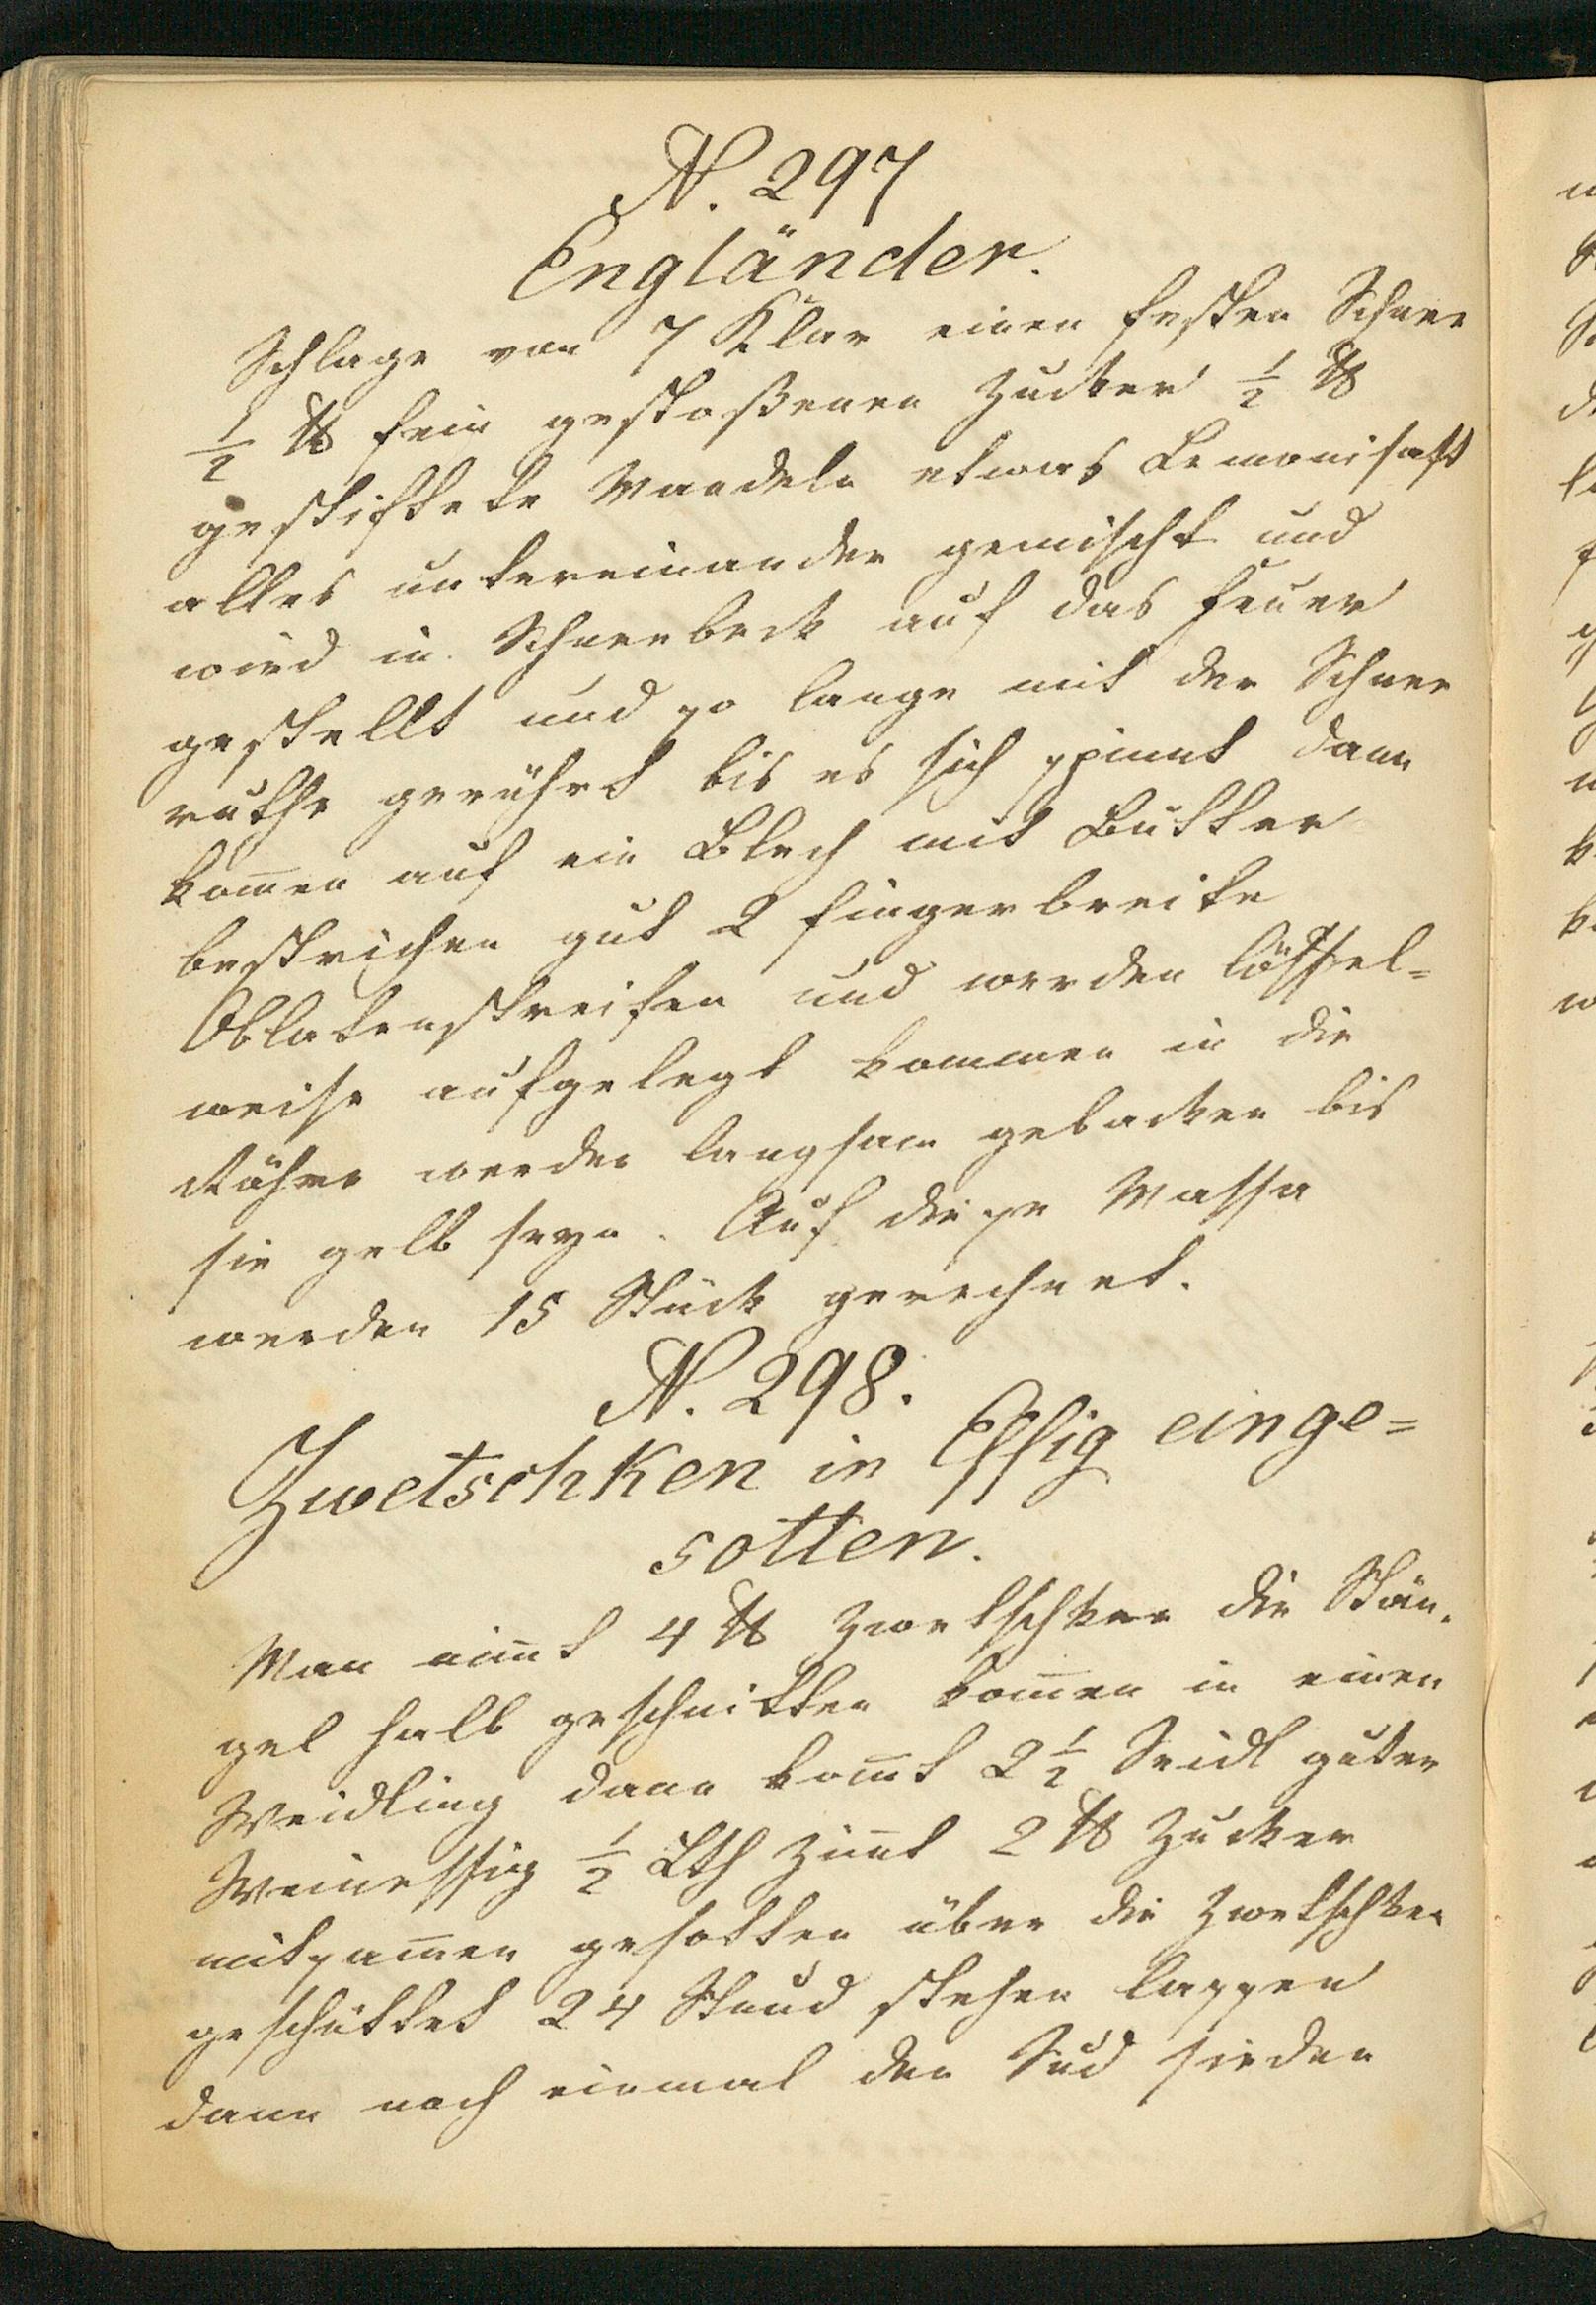 N. 297
Engländer.
Schlage von 7 Klar einen festen Schnee
½ ℔ fein gestoßenen Zucker ½ ℔
gestiftete Mandeln etwas Lemonisaft
alles untereinander gemischt und
wird in Schneebeck auf das Feuer
gestellt und so lange mit der Schnee
ruthe gerührt bis es sich spinnt dann
kom̄en auf ein Blech mit Butter
bestrichen gut 2 fingerbreite
Oblatenstreifen und werden löffel=
weise aufgelegt kommen in die
Röhre werden langsam gebacken bis
sie gelb seyn. Auf diese Massa
werden 15 Stück gerechnet.
N. 298.
Zwetschken in Essig einge=
sotten.
Man nim̄t 4 ℔ Zwetschken die Stän.
gel halb geschnitten kom̄en in einen
Weidling dann kom̄t 2½ Seidl guter
Weinessig ½ Lth Zim̄t 2 ℔ Zucker
mitsam̄en gesotten über die Zwetschken
geschüttet 24 Stund stehen lassen
dann noch einmal den Sud sieden